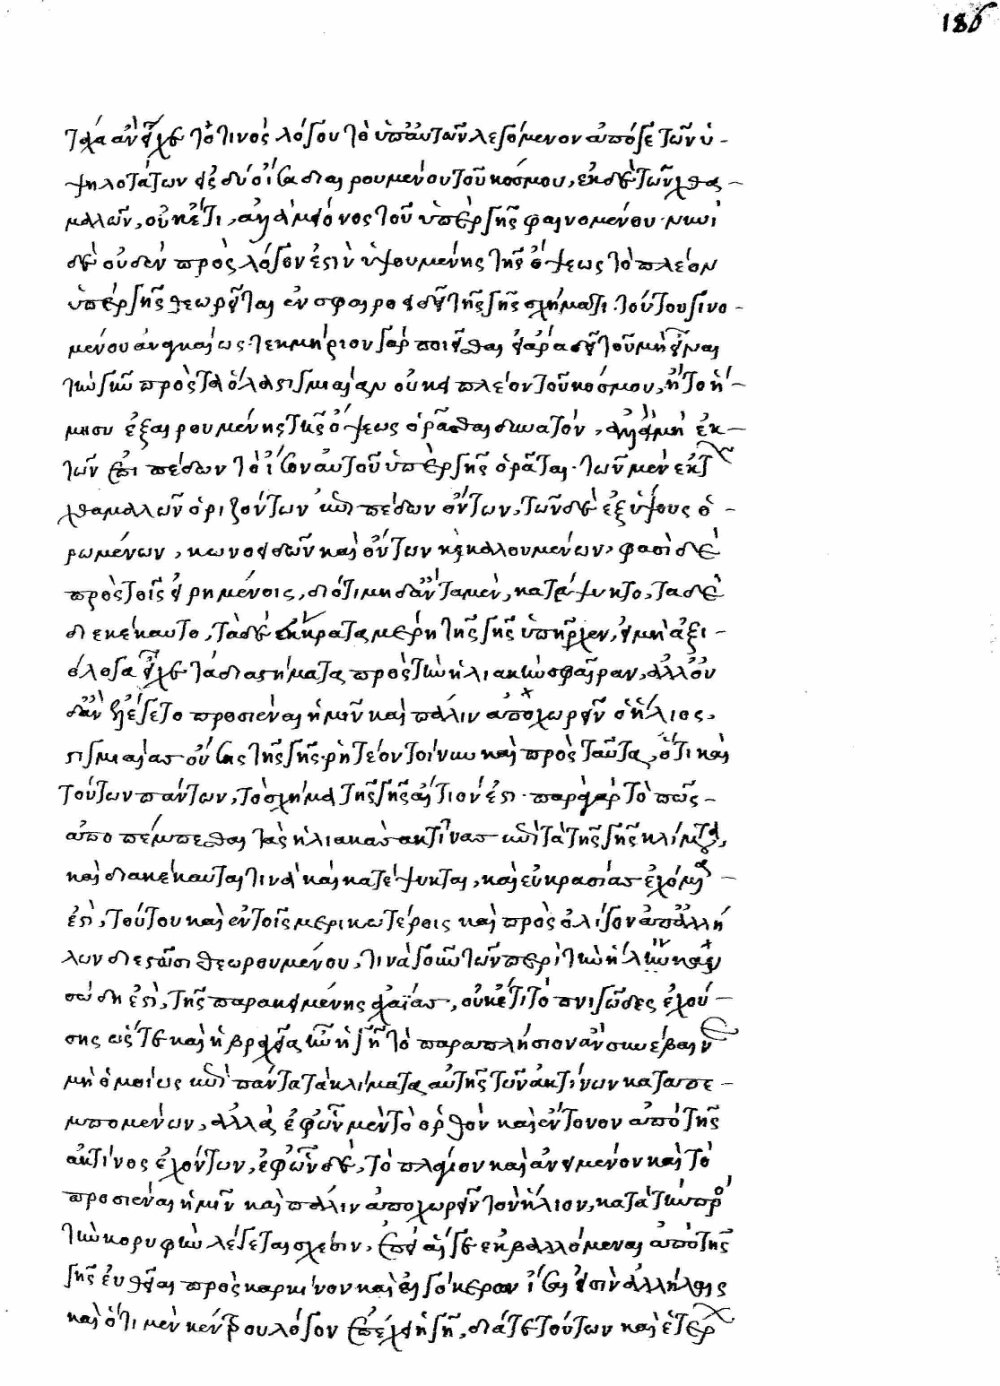 186
τχα ἂν εἶχε τό τινος λόγου τὸ ὑπ' αὐτῶν λεγόμενον ἀπό γε τῶν ὑ-
ψηλοτάτων εἰς δύο ἴσα διαιρουμένου τοῦ κόσμου, ἐκ δὲ τῶν χθα-
μαλῶν, οὐκέτι, ἀλλὰ μείονος τοῦ ὑπὲρ γῆς φαινομένου. νυνὶ
δὲ οὐδὲν πρὸς λόγον ἐστὶν ὑψουμένης τῆς ὄψεως τὸ πλέον
ὑπὲρ γῆς θεωρεῖται ἐν σφαιροειδεῖ τῆς γῆς σχήματι. τούτου γινο-
μένου ἀναγκαίως. τεκμήριον γὰρ ποιεῖσθαι τοῦ μὴ εἶναι
τὴν γῆν πρὸς τὰ ὅλα στιγμιαίαν οὐκ πλέον τοῦ κόσμου, ἢ τὸ ἥ-
μισυ ἐξαιρουμένης τῆς ὄψεως ὁρᾶσθαι δυνατόν, ἀλλὰ μὴ ἐκ
τῶν ἐπιπέδων τὸ ἴσον αὐτοῦ ὑπὲρ γῆς ὁρᾶται. τῶν μὲν ἐκ τ
χθαμαλῶν ὁριζόντων ἐπιπέδων ὄντων, τῶν δὲ ἐξ ὕψους ὁ-
ρωμένων, κωνοειδῶν καὶ ὄντων καὶ καλουμένων. φασὶ δὲ
πρὸς τοῖς εἰρημένοις, διότι μηδ' ἂν τὰ μὲν, κατέψυκτο, τὰ δὲ
διεκέκαυτο, τὰ δὲ εὔκρατα μέρη τῆς γῆς ὑπῆρχεν, εἰ μὴ ἀξι-
όλογα εἶχε τὰ διαστήματα πρὸς τὴν ἡλιακὴν σφαῖραν, ἀλλ' οὐ
δ' ἂν ἐλέγετο προσιέναι ἡμῖν καὶ πάλιν ἀποχωρεῖν ὁ ἥλιος,
στιγμιαίας οὔσης τῆς γῆς. ῥητέον τοίνυν καὶ πρὸς ταῦτα, ὅτι καὶ
τούτων πάντων, τὸ σχῆμα τῆς γῆς αἴτιόν ἐστι. παρὰ γὰρ τὸ πῶς
ἀποπέμπεσθαι τὰς ἡλιακὰς ἀκτῖνας ἐπὶ τὰ τῆς γῆς κλίματα,
καὶ διακέκαυταί τινα καὶ κατέψυκται, καὶ εὐκρασίας ἐχόμενα
ἐστὶ, τούτου καὶ ἐν τοῖς μερικωτέροις καὶ πρὸς ὀλίγον ἀπ' ἀλλή
λων διεστῶσι θεωρουμένου, τινὰ γοῦν τῶν περὶ τὴν
ἐστὶ, τῆς παρακειμένης, οὐκέτι τὸ πνιγῶδες ἐχού-
σης ὥστε καὶ ἡ βραχεῖα ἦν ἡ γῆ τὸ παραπλήσιον ἂν συνέβαινε
μὴ ὁμοίως ἐπὶ πάντα τὰ κλίματα αὐτῆς τῶν ἀκτίνων καταπε-
μπομένων, ἀλλὰ ἐφ' ὧν μὲν τὸ ὀρθὸν καὶ ἔντονον ἀπὸ τῆς
ἀκτῖνος ἐχόντων, ἐφ' ὧν δὲ, τὸ πλάγιον καὶ ἀνειμένον καὶ τὸ
προσιέναι ἡμῖν καὶ πάλιν ἀποχωρεῖν τὸν ἥλιον, κατὰ τὴν πρὸ
τὴν κορυφὴν λέγεται σχέσιν, ἐπεὶ αἵ γε ἐκβαλλόμεναι ἀπὸ τῆς
γῆς εὐθεῖαι πρὸς καρκίνον καὶ αἰγόκερων ἴσαι εἰσὶν ἀλλήλαις
καὶ ὅτι μὲν κέντρου λόγον ἐπέχει ἡ γῆ, διά τε τούτων καὶ ἑτέρων